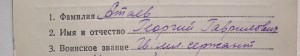 1. Фамилия Отаев
2. Имя и отчество Георгий Гаврилович
3. Воинское звание Гв. мл. сержант